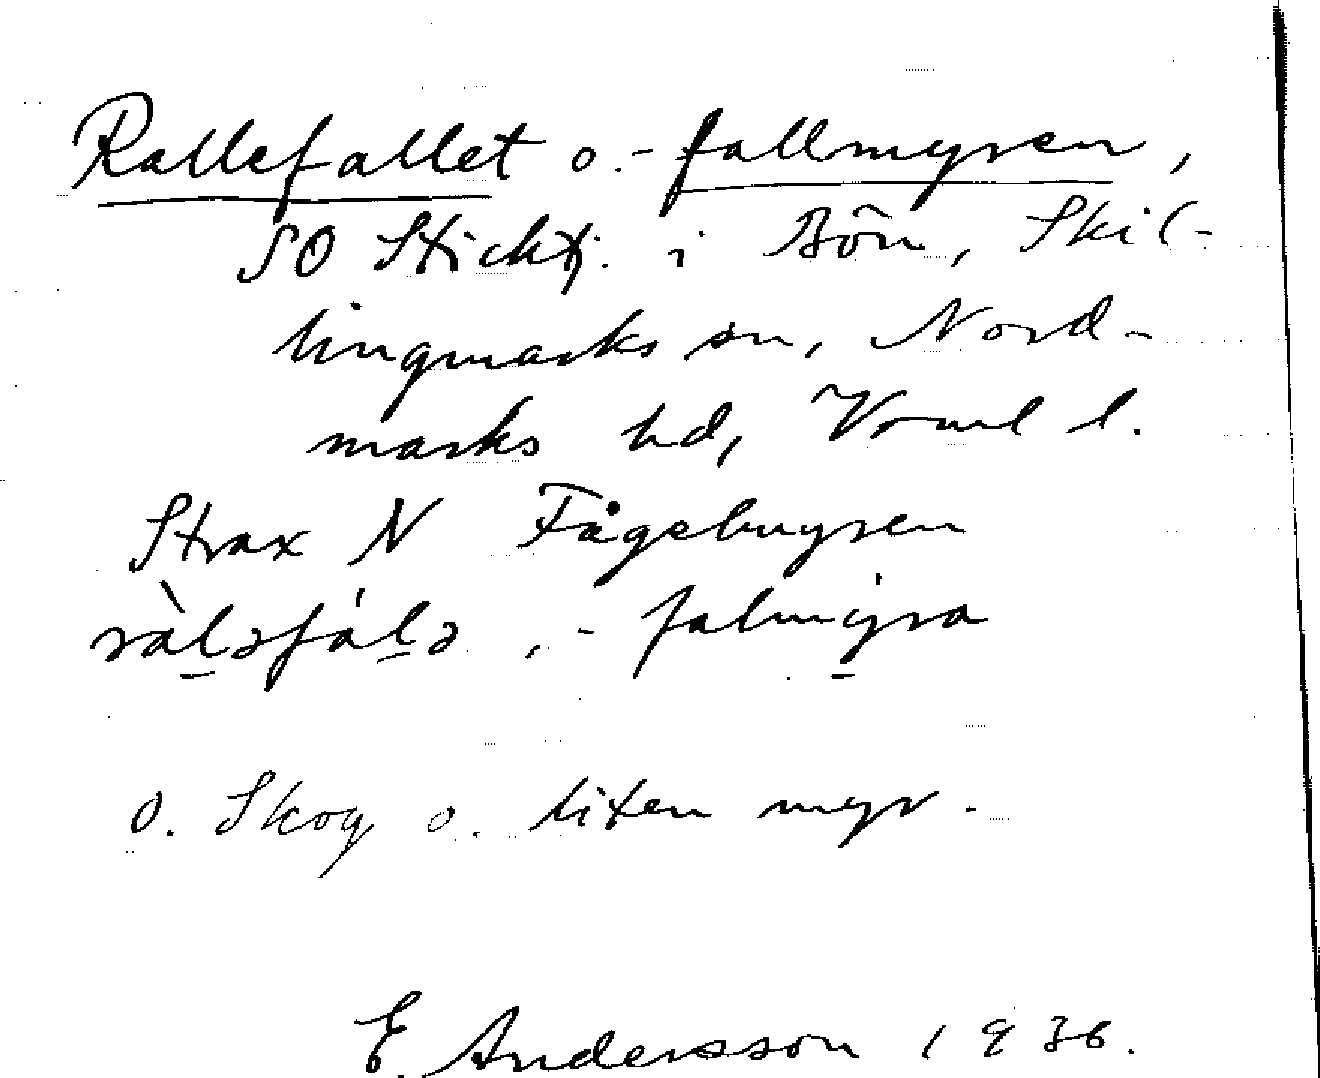 Rallefallet o. - fallmyren,
SO Sticktj. i Bön, Skil-
lingmarks sn, Nord-
marks hd, Vrml l.
Strax N Fågelmyren
ràl̲əfál̲ə, - falmy̲ra
o. Skog o. liten myr.
E. Andersson 1936.